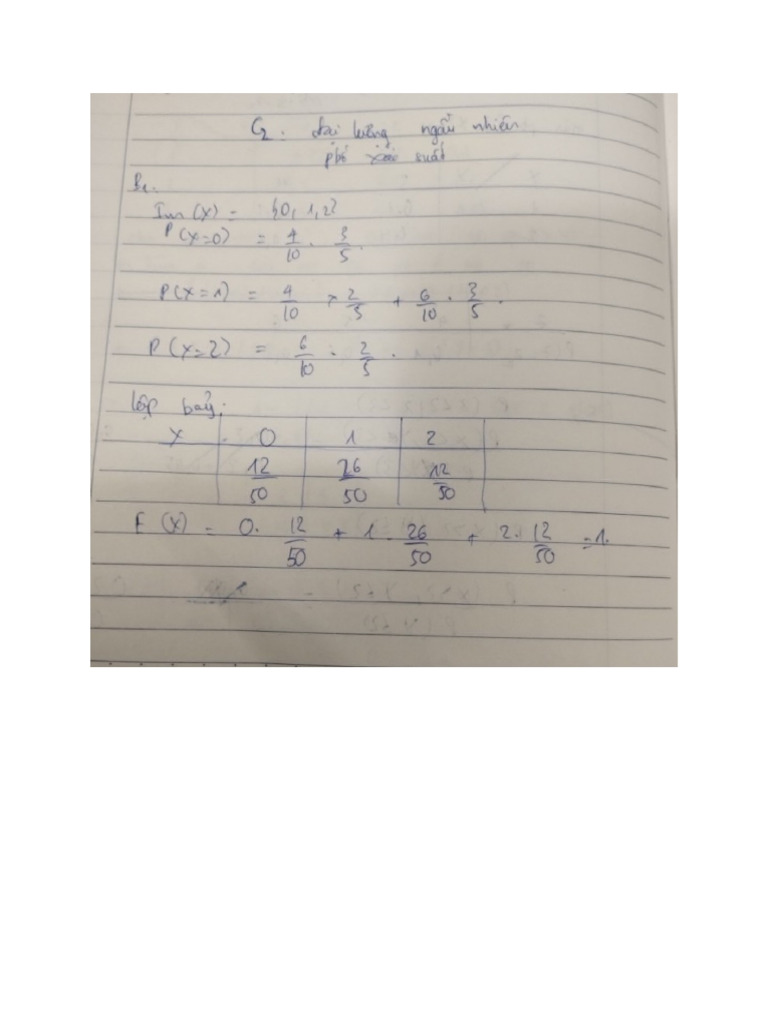 C2. đại lượng ngẫu nhiên
phố xác suất
B1.
Im(X) = {0, 1, 2}
P(X=0) = 4/10 . 3/5.
P(X=1) = 4/10 × 2/5 + 6/10 . 3/5.
P(X=2) = 6/10 . 2/5.
lập bảg:
X 0 1 2
12/50 26/50 12/50
E(X) = 0. 12/50 + 1. 26/50 + 2. 12/50 = 1.